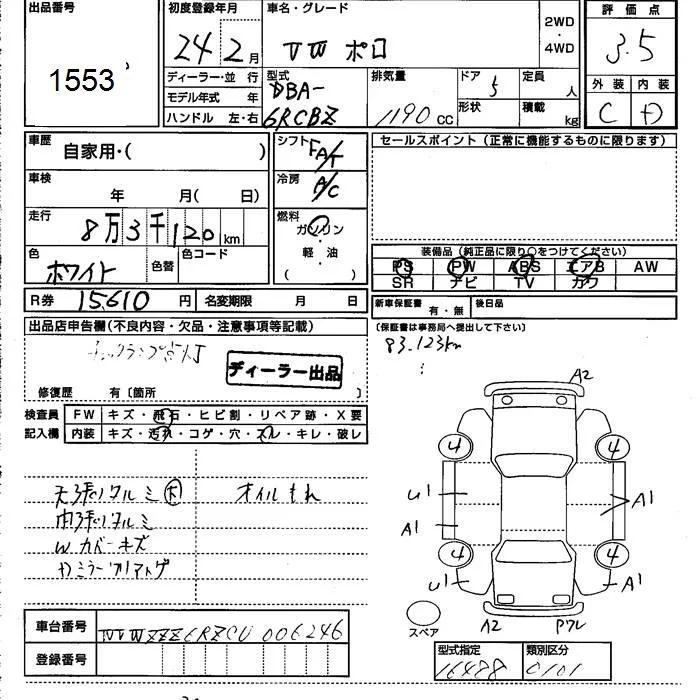 出品番号
1553
初度登録年月
24 2月
車名・グレード
VW ポロ
2WD
・
4WD
評価点
3.5
外装 内装
C D
ディーラー・並 行
モデル年式 年
ハンドル 左・右
型式
DBA-
6RCBZ
排気量
1190 cc
ドア
5
定員 人
形状
積載 kg
車歴
自家用・( )
車検
年 月( 日)
走行
8万3千120 km
色
ホワイト
色替
色コード
シフト
FAT
冷房
A/C
燃料
ガソリン
・
軽・油
( )
セールスポイント (正常に機能するものに限ります)
装備品 (純正品に限り○をつけてください)
PS PW ABS エアB AW
SR ナビ TV カワ
R券 15,610 円 名変期限 月 日
新車保証書 有・無 後日品
(保証書は事務局へ提出して下さい)
83,123km
出品店申告欄 (不良内容・欠品・注意事項等記載)
ディーラー出品
修復歴 有〔箇所 〕
検査員 FW キズ・飛石・ヒビ割・リペア跡・X要
記入欄 内装 キズ・汚れ・コゲ・穴・スレ・キレ・破レ
天張りタルミ
オイルもれ
内張りタルミ
Wカバーキズ
A2
4 4
U1 A1
A1
4 4
U1 A1
スペア
A2
車台番号 WVWZZZ6RZCU006246
登録番号
型式指定 類別区分
16488 0101